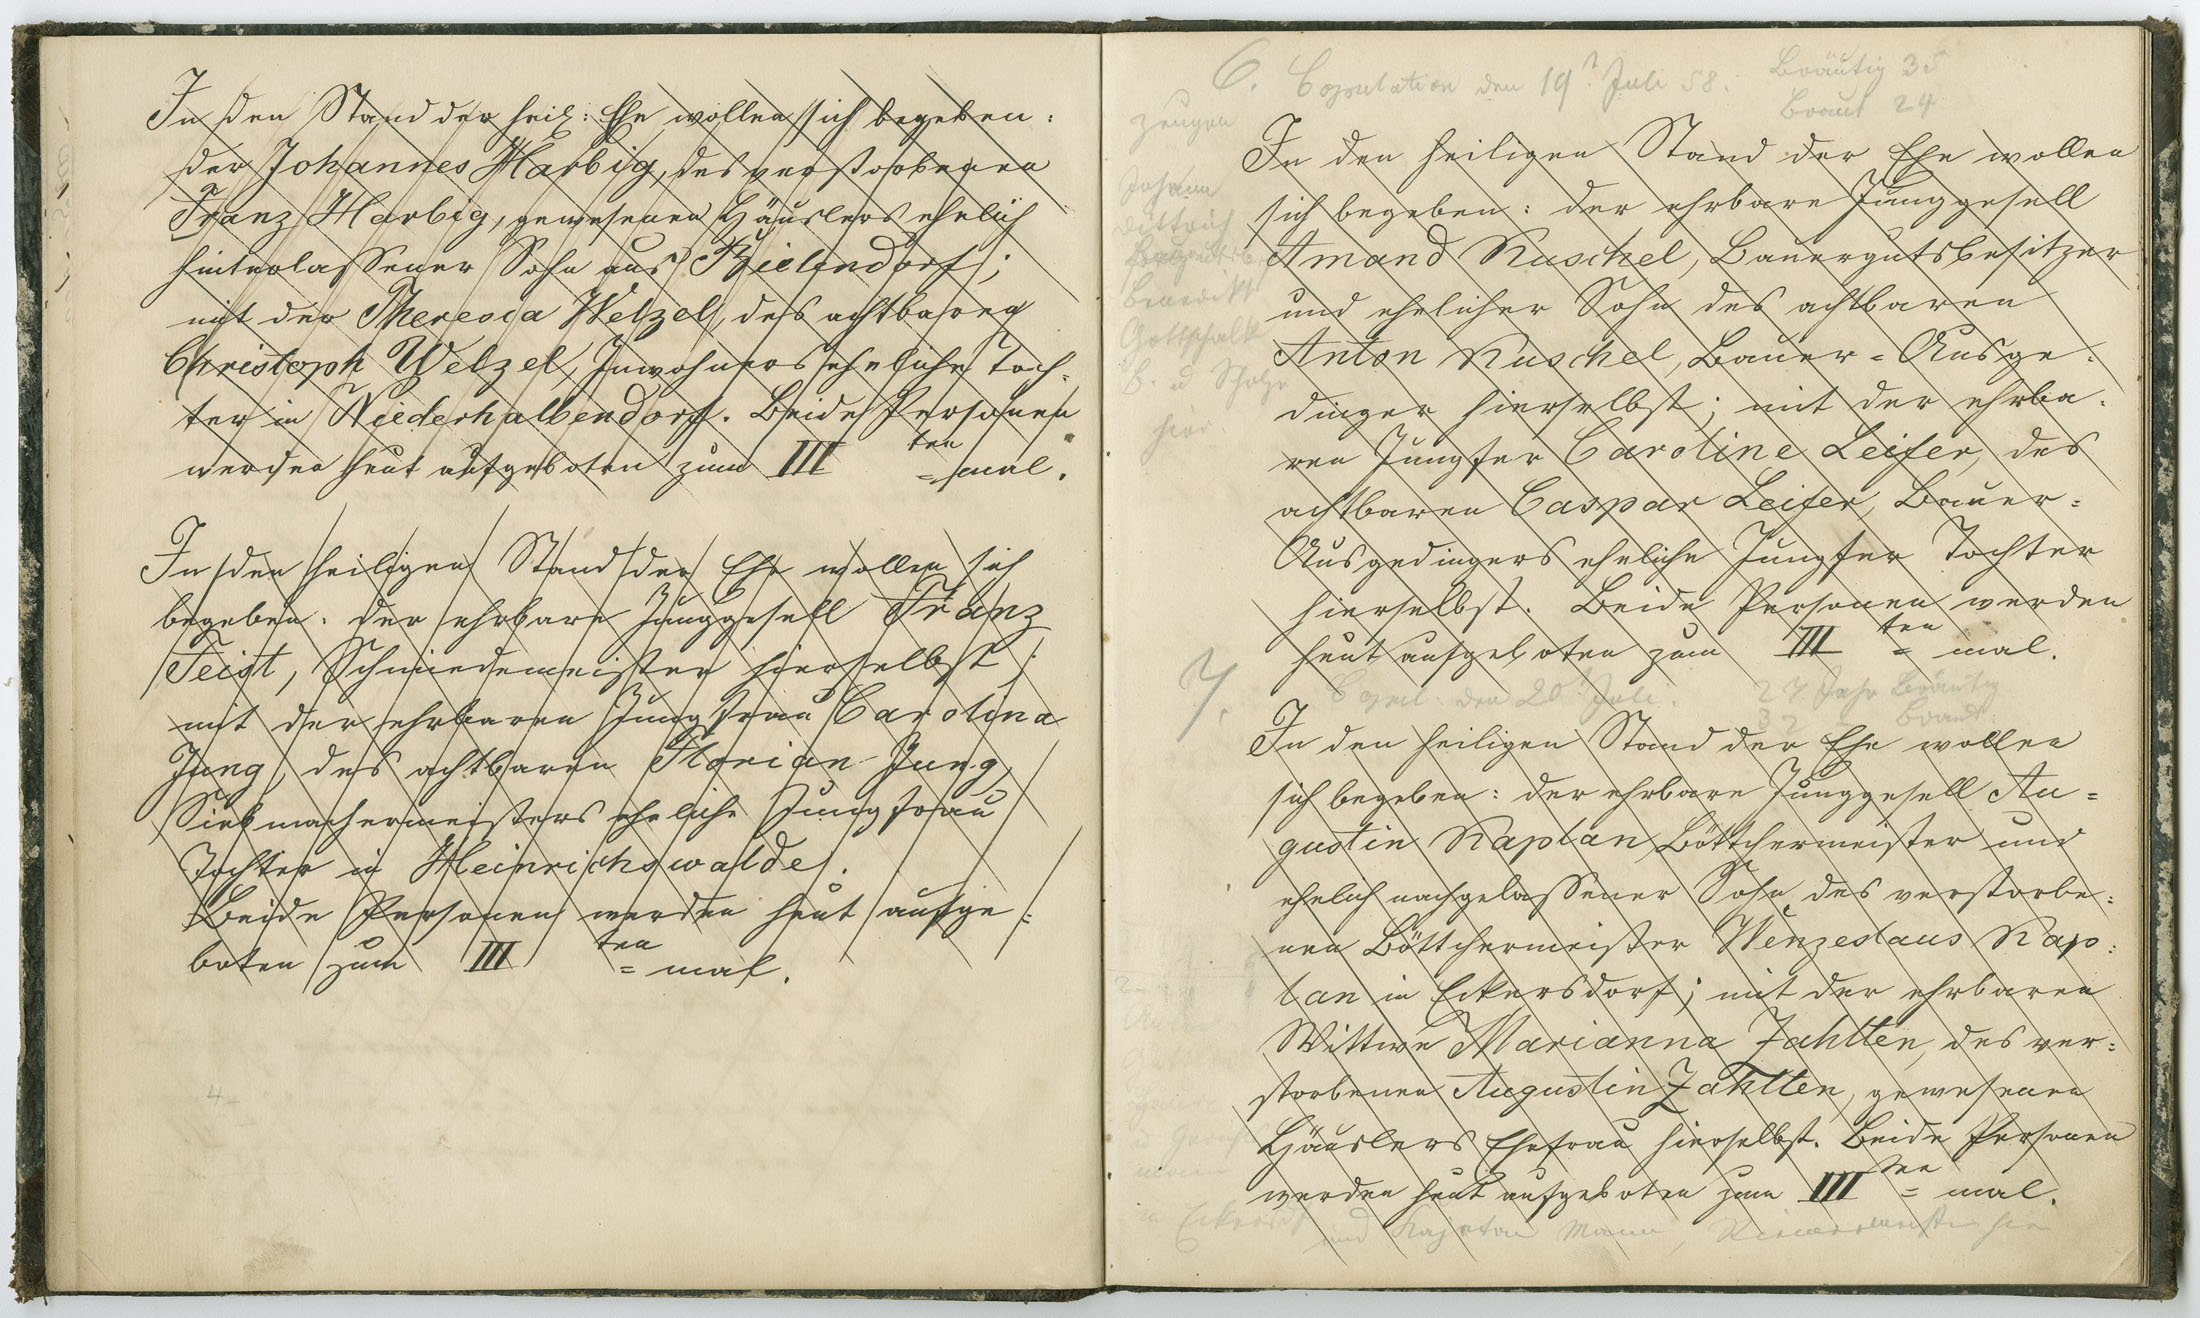 In den Stand der heil: Ehe wollen sich begeben:
der Johannes Harbig, des verstorbenen
Franz Harbig, gewesenen Häuslers ehelich
hinterlassener Sohn aus Bielendorf;
mit der Theresia Welzel, des achtbaren
Christoph Welzel, Inwohners eheliche Toch-
ter in Niederhalbendorf. Beide Personen
werden heut aufgeboten zum III ten = mal.
In den heiligen Stand der Ehe wollen sich
begeben: der ehrbare Junggesell Franz
Teist, Schmiedemeister hierselbst;
mit der ehrbaren Jungfrau Carolina
Jung, des achtbaren Florian Jung,
Siebmachermeisters eheliche Jungfrau
Tochter in Heinrichswalde.
Beide Personen werden heut aufge=
boten zum III ten = mal.
4
6. Copulation den 19 t Juli 58. Bräutig 35
Braut 24
Zeugen
Johann
Dittrich
Benedikt
Gottschalk
hier.
In den heiligen Stand der Ehe wollen
sich begeben: der ehrbare Junggesell
Amand Ruschel, Bauergutsbesitzer
und ehelicher Sohn des achtbaren
Anton Ruschel, Bauer=Ausge=
dinger hierselbst; mit der ehrba=
ren Jungfer Caroline Leifer, des
achtbaren Caspar Leifer, Bauer=
Ausgedingers eheliche Jungfer Tochter
hierselbst. Beide Personen werden
heut aufgeboten zum III ten = mal.
7. Copul. den 20 t Juli. 27 Jahr Bräutig
32 — Braut
In den heiligen Stand der Ehe wollen
sich begeben: der ehrbare Junggesell Au=
gustin Kaplan, Böttchermeister und
ehelich nachgelassener Sohn des verstorbe=
nen Böttchermeister Wenzeslaus Kap=
lan in Eckersdorf; mit der ehrbaren
Wittwe Marianna Zahlten, des ver=
storbenen Augustin Zahlten, gewesenen
Häuslers Ehefrau hierselbst. Beide Personen
werden heut aufgeboten zum III ten = mal.
in Eckersdf und Kajetan Mann, hier